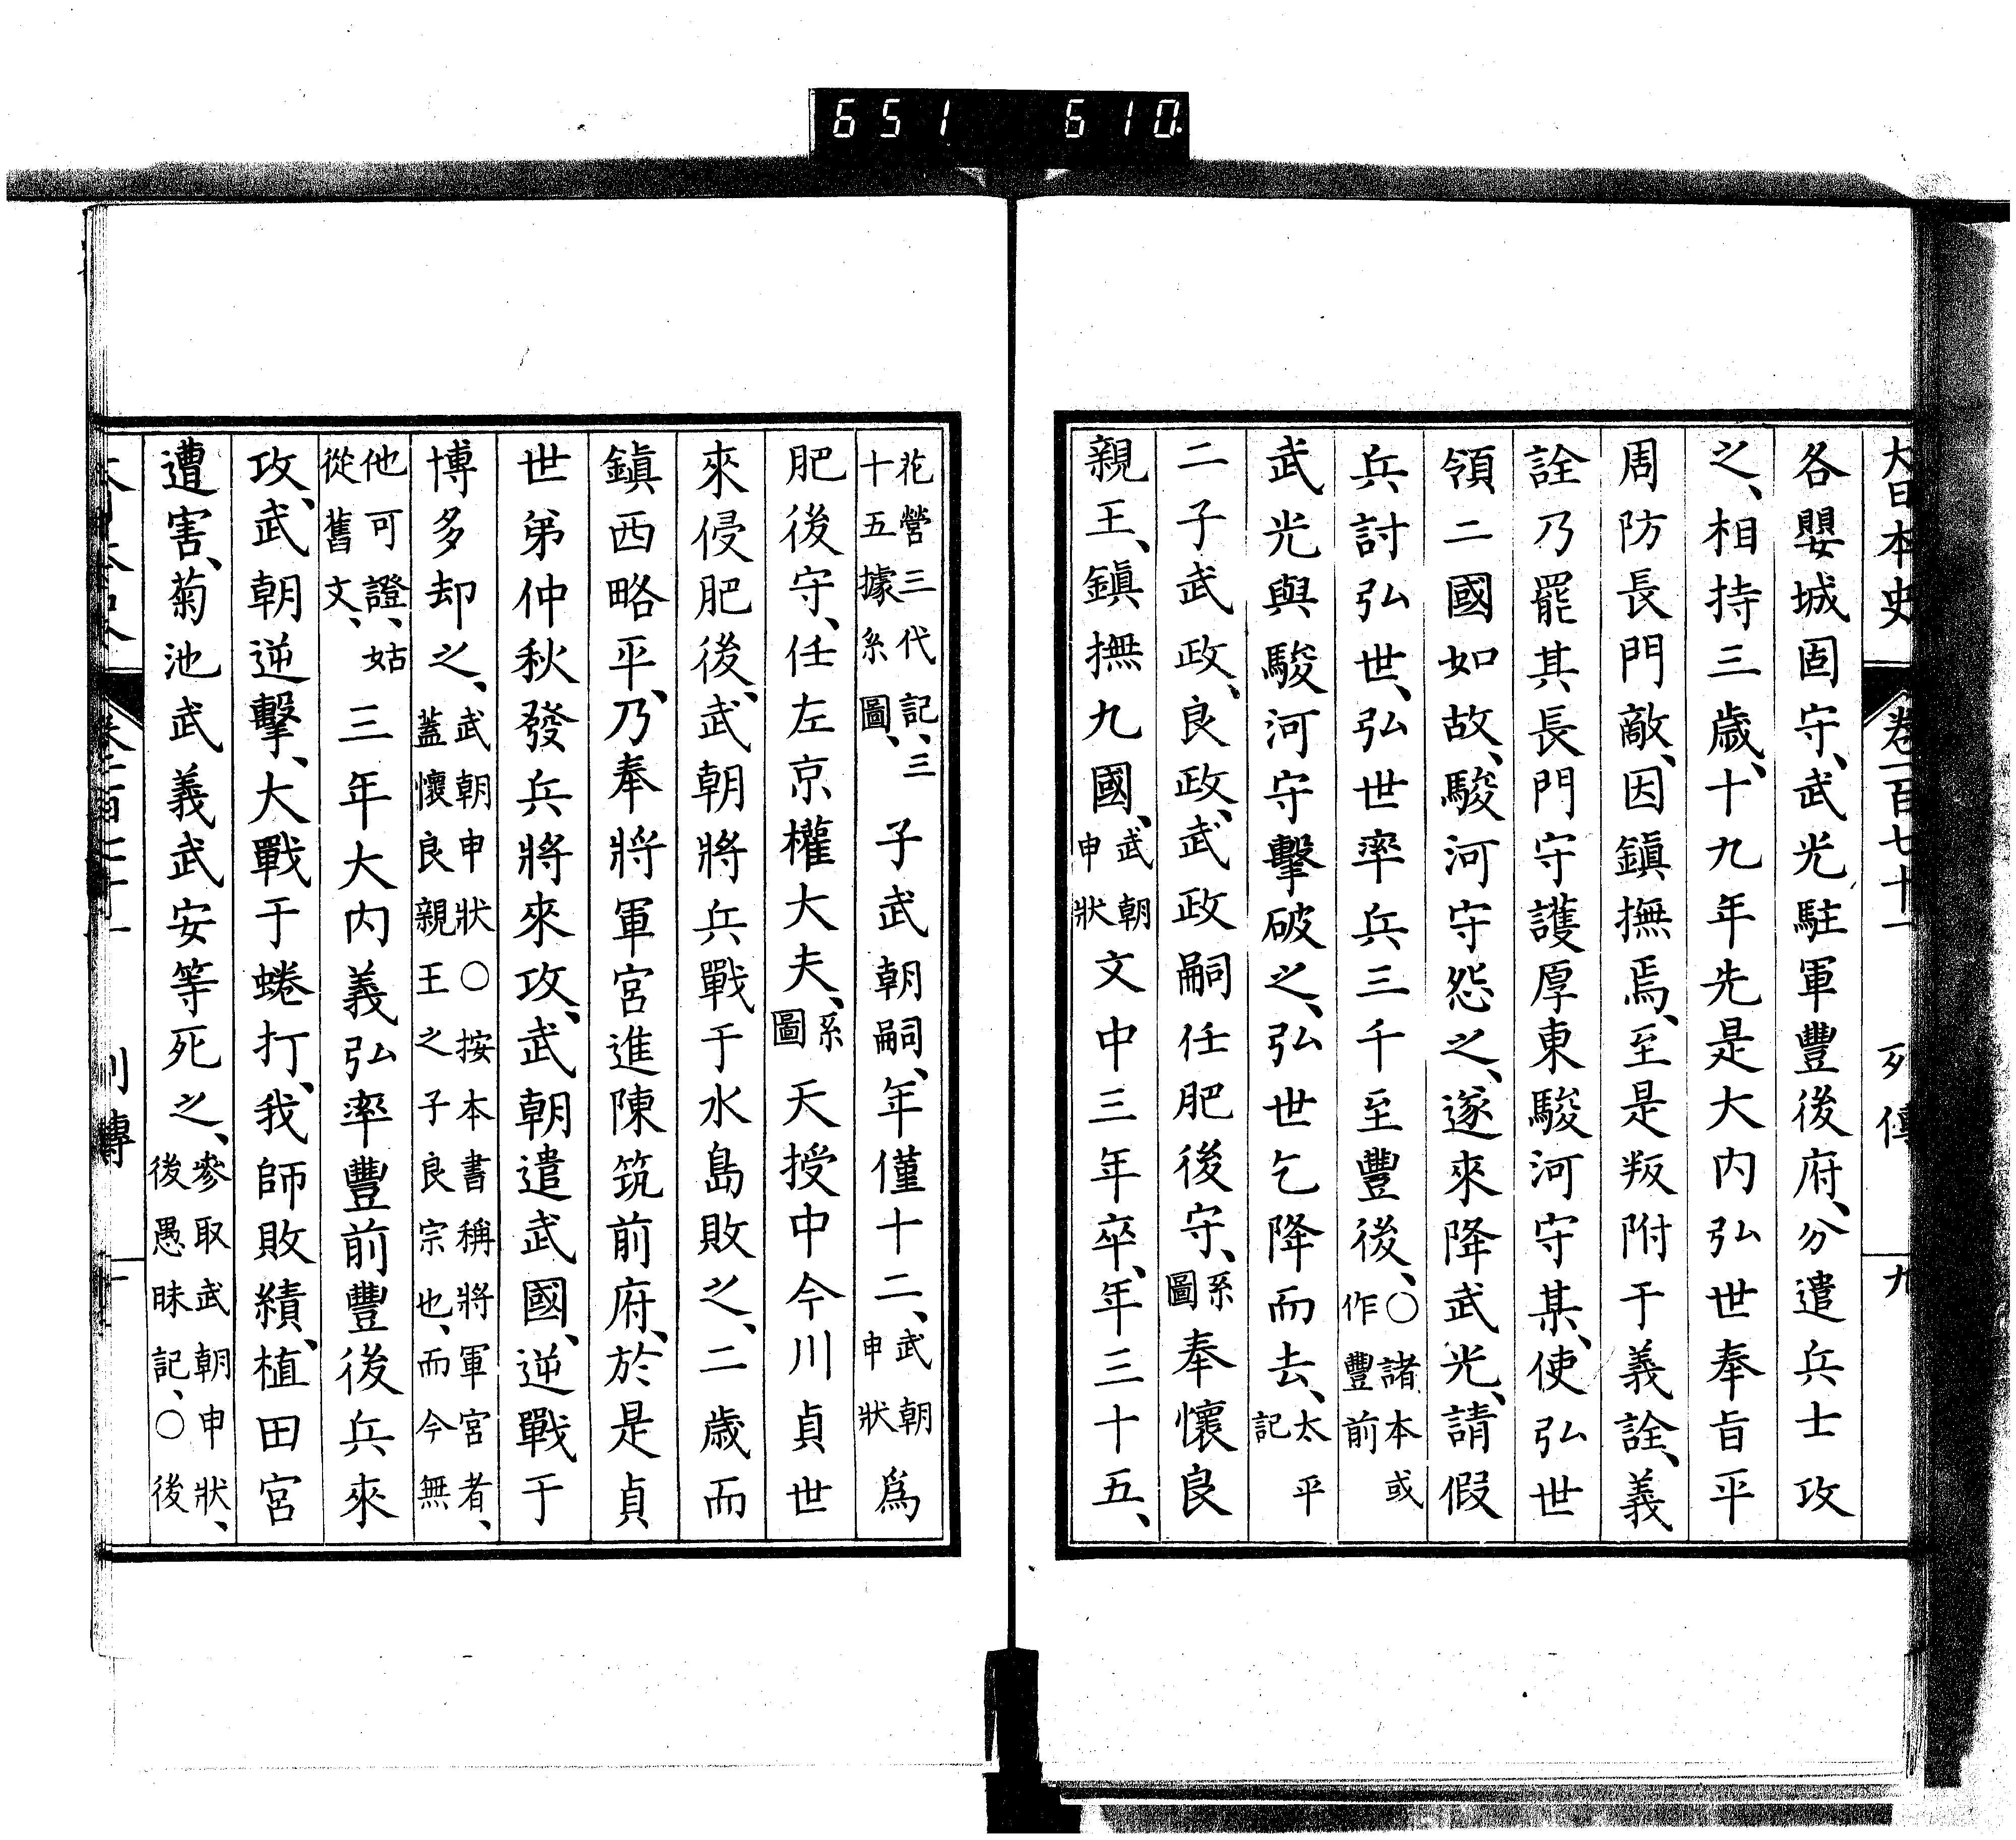 651 610
大日本史 卷二百七十一 列傳 九
各嬰城固守、武光駐軍豐後府、分遣兵士攻
之、相持三歲、十九年先是大内弘世奉旨平
周防長門敵、因鎭撫焉、至是叛附于義詮、義
詮乃罷其長門守護厚東駿河守某、使弘世
領二國如故、駿河守怨之、遂來降武光、請假
兵討弘世、弘世率兵三千至豐後、○諸本或作豐前
武光與駿河守擊破之、弘世乞降而去、太平記
二子武政、良政、武政嗣任肥後守、系圖奉懷良
親王、鎭撫九國、武朝申狀文中三年卒、年三十五、
花營三代記、三十五據系圖、子武朝嗣、年僅十二、武朝申狀爲
肥後守、任左京權大夫、系圖天授中今川貞世
來侵肥後、武朝將兵戰于水島敗之、二歲而
鎭西略平、乃奉將軍宮進陳筑前府、於是貞
世弟仲秋發兵將來攻、武朝遣武國、逆戰于
博多却之、武朝申狀○按本書稱將軍宮者、蓋懷良親王之子良宗也、而今無
他可證、姑從舊文、三年大内義弘率豐前豐後兵來
攻、武朝逆擊、大戰于蜷打、我師敗績、植田宮
遭害、菊池武義武安等死之、參取武朝申狀、後愚昧記、○後
列傳